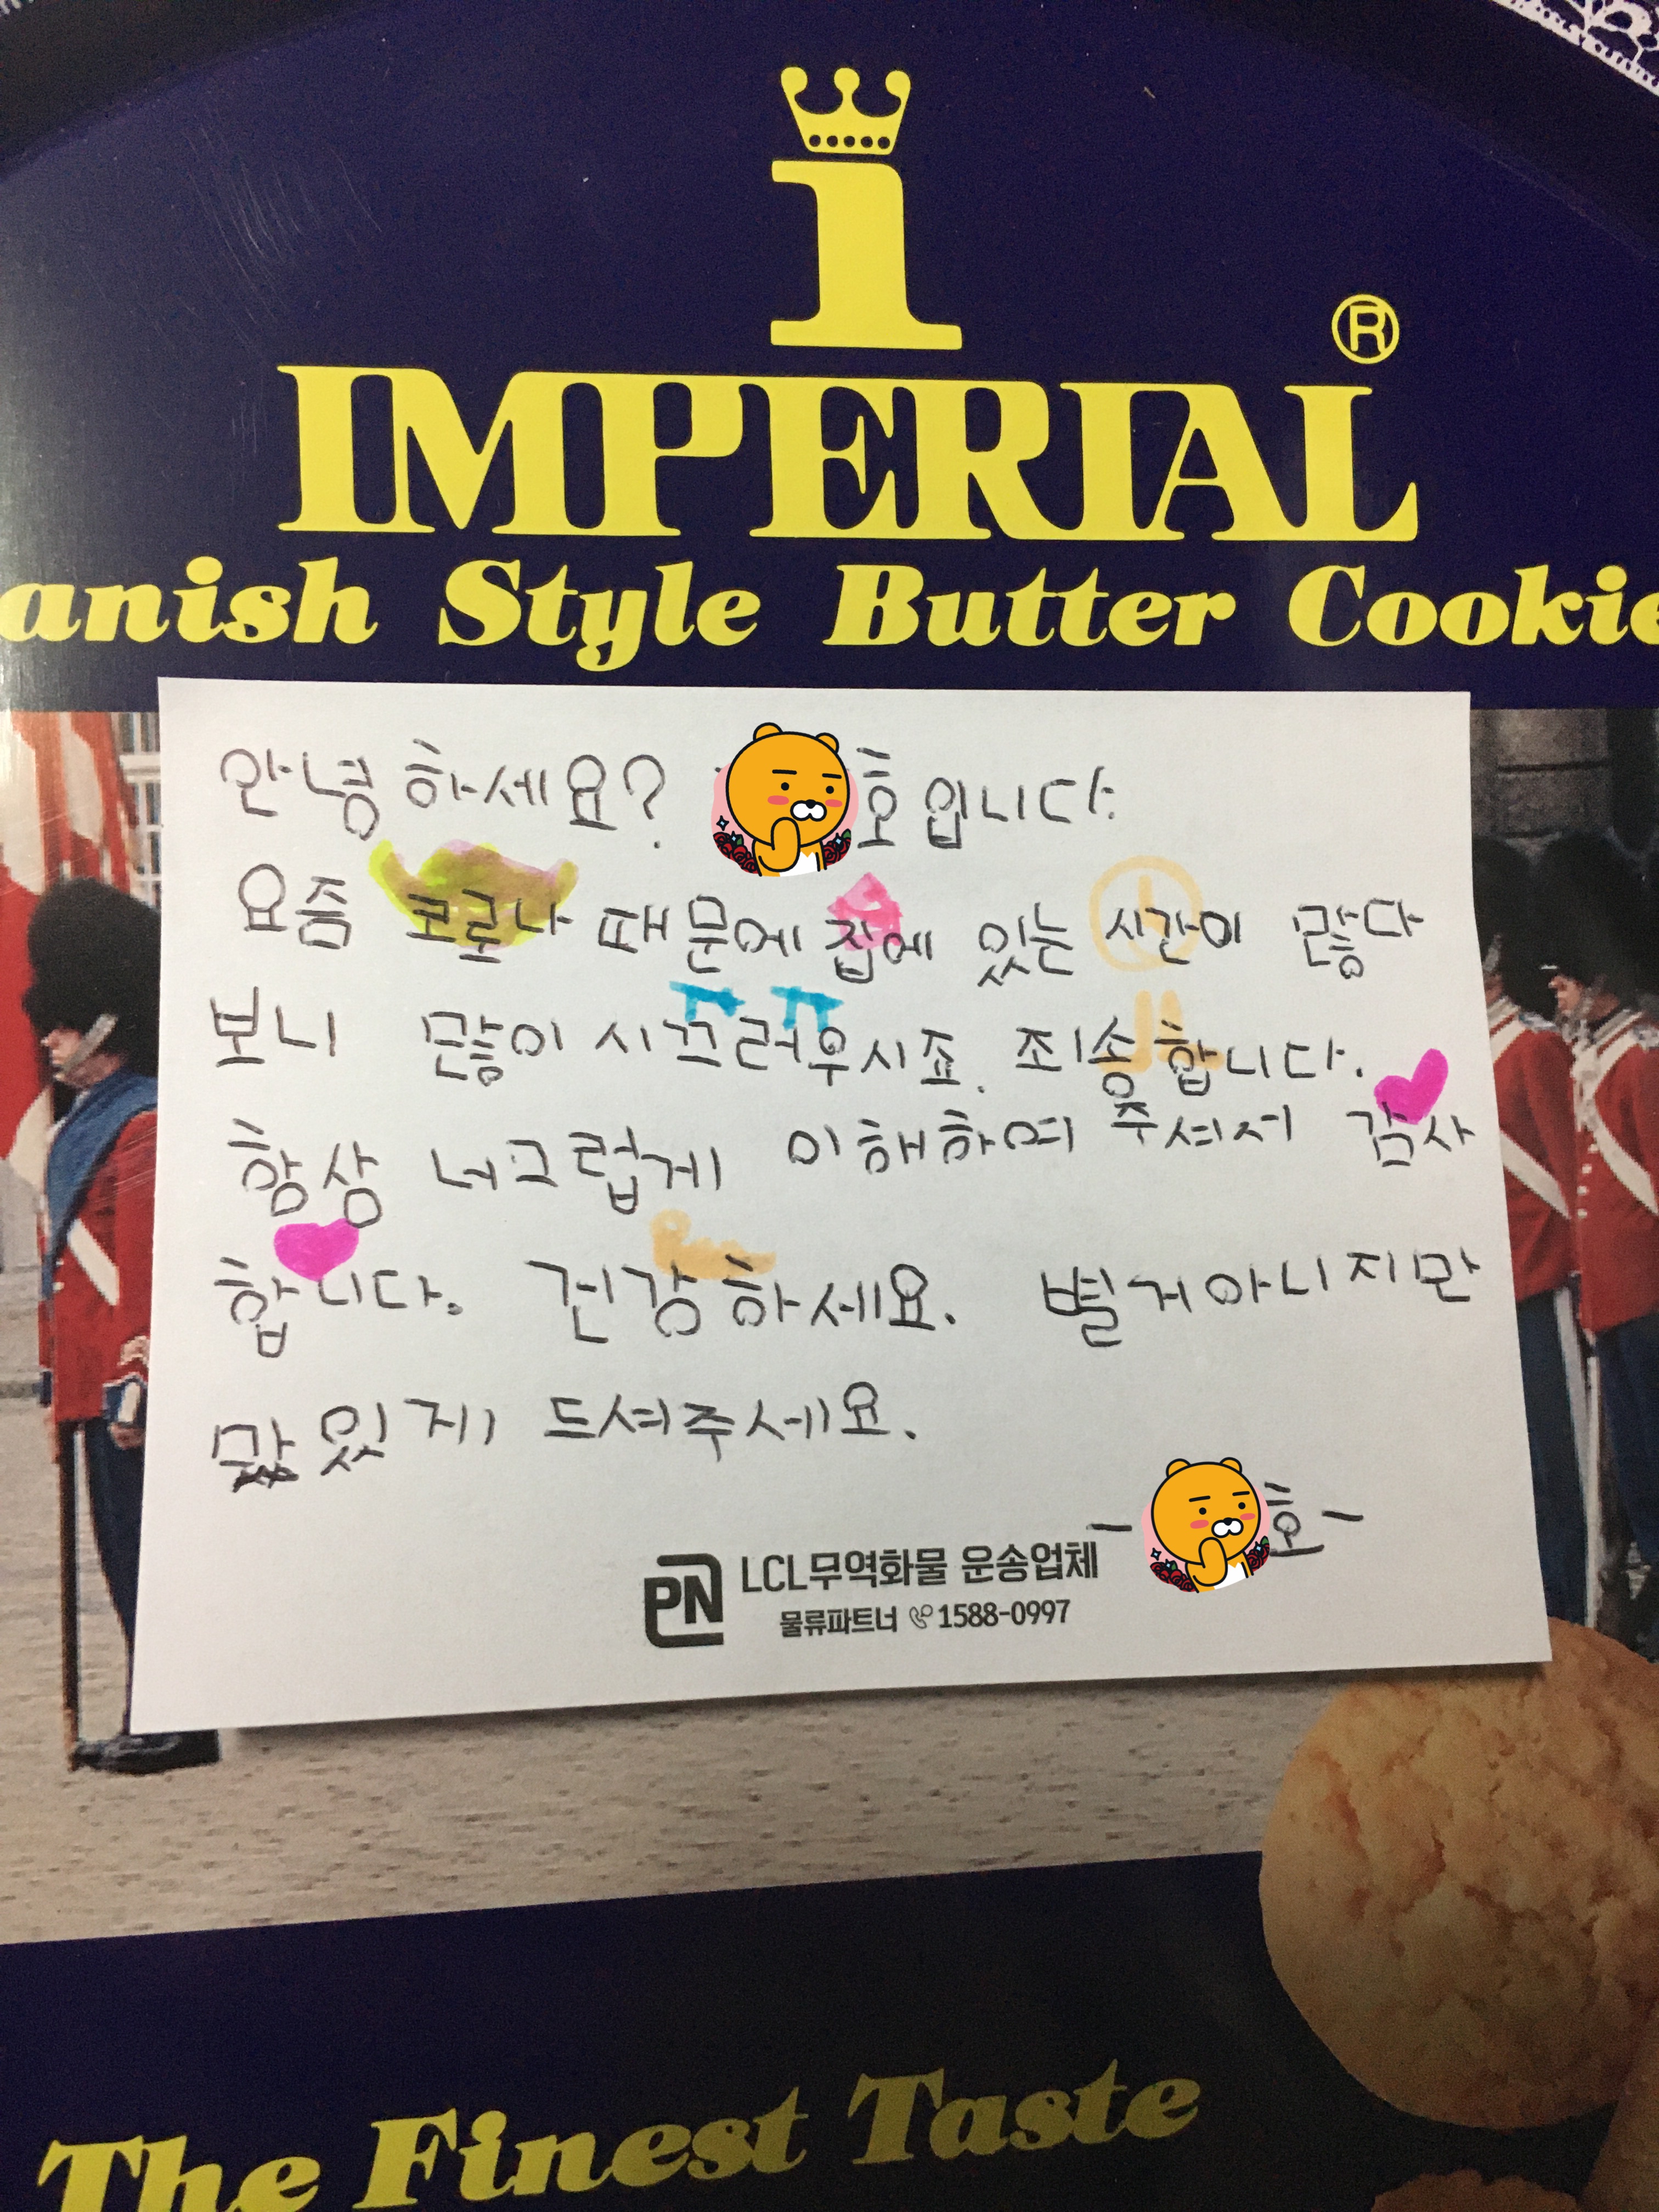 i
IMPERIAL ®
anish Style Butter Cookie
안녕하세요? 호입니다.
요즘 코로나 때문에 집에 있는 시간이 많다
보니 많이 시끄러우시죠. 죄송합니다.
항상 너그럽게 이해하여 주셔서 감사
합니다. 건강하세요. 별거아니지만
맜있게 드셔주세요.
- 호 -
PN LCL무역화물 운송업체
물류파트너 1588-0997
The Finest Taste